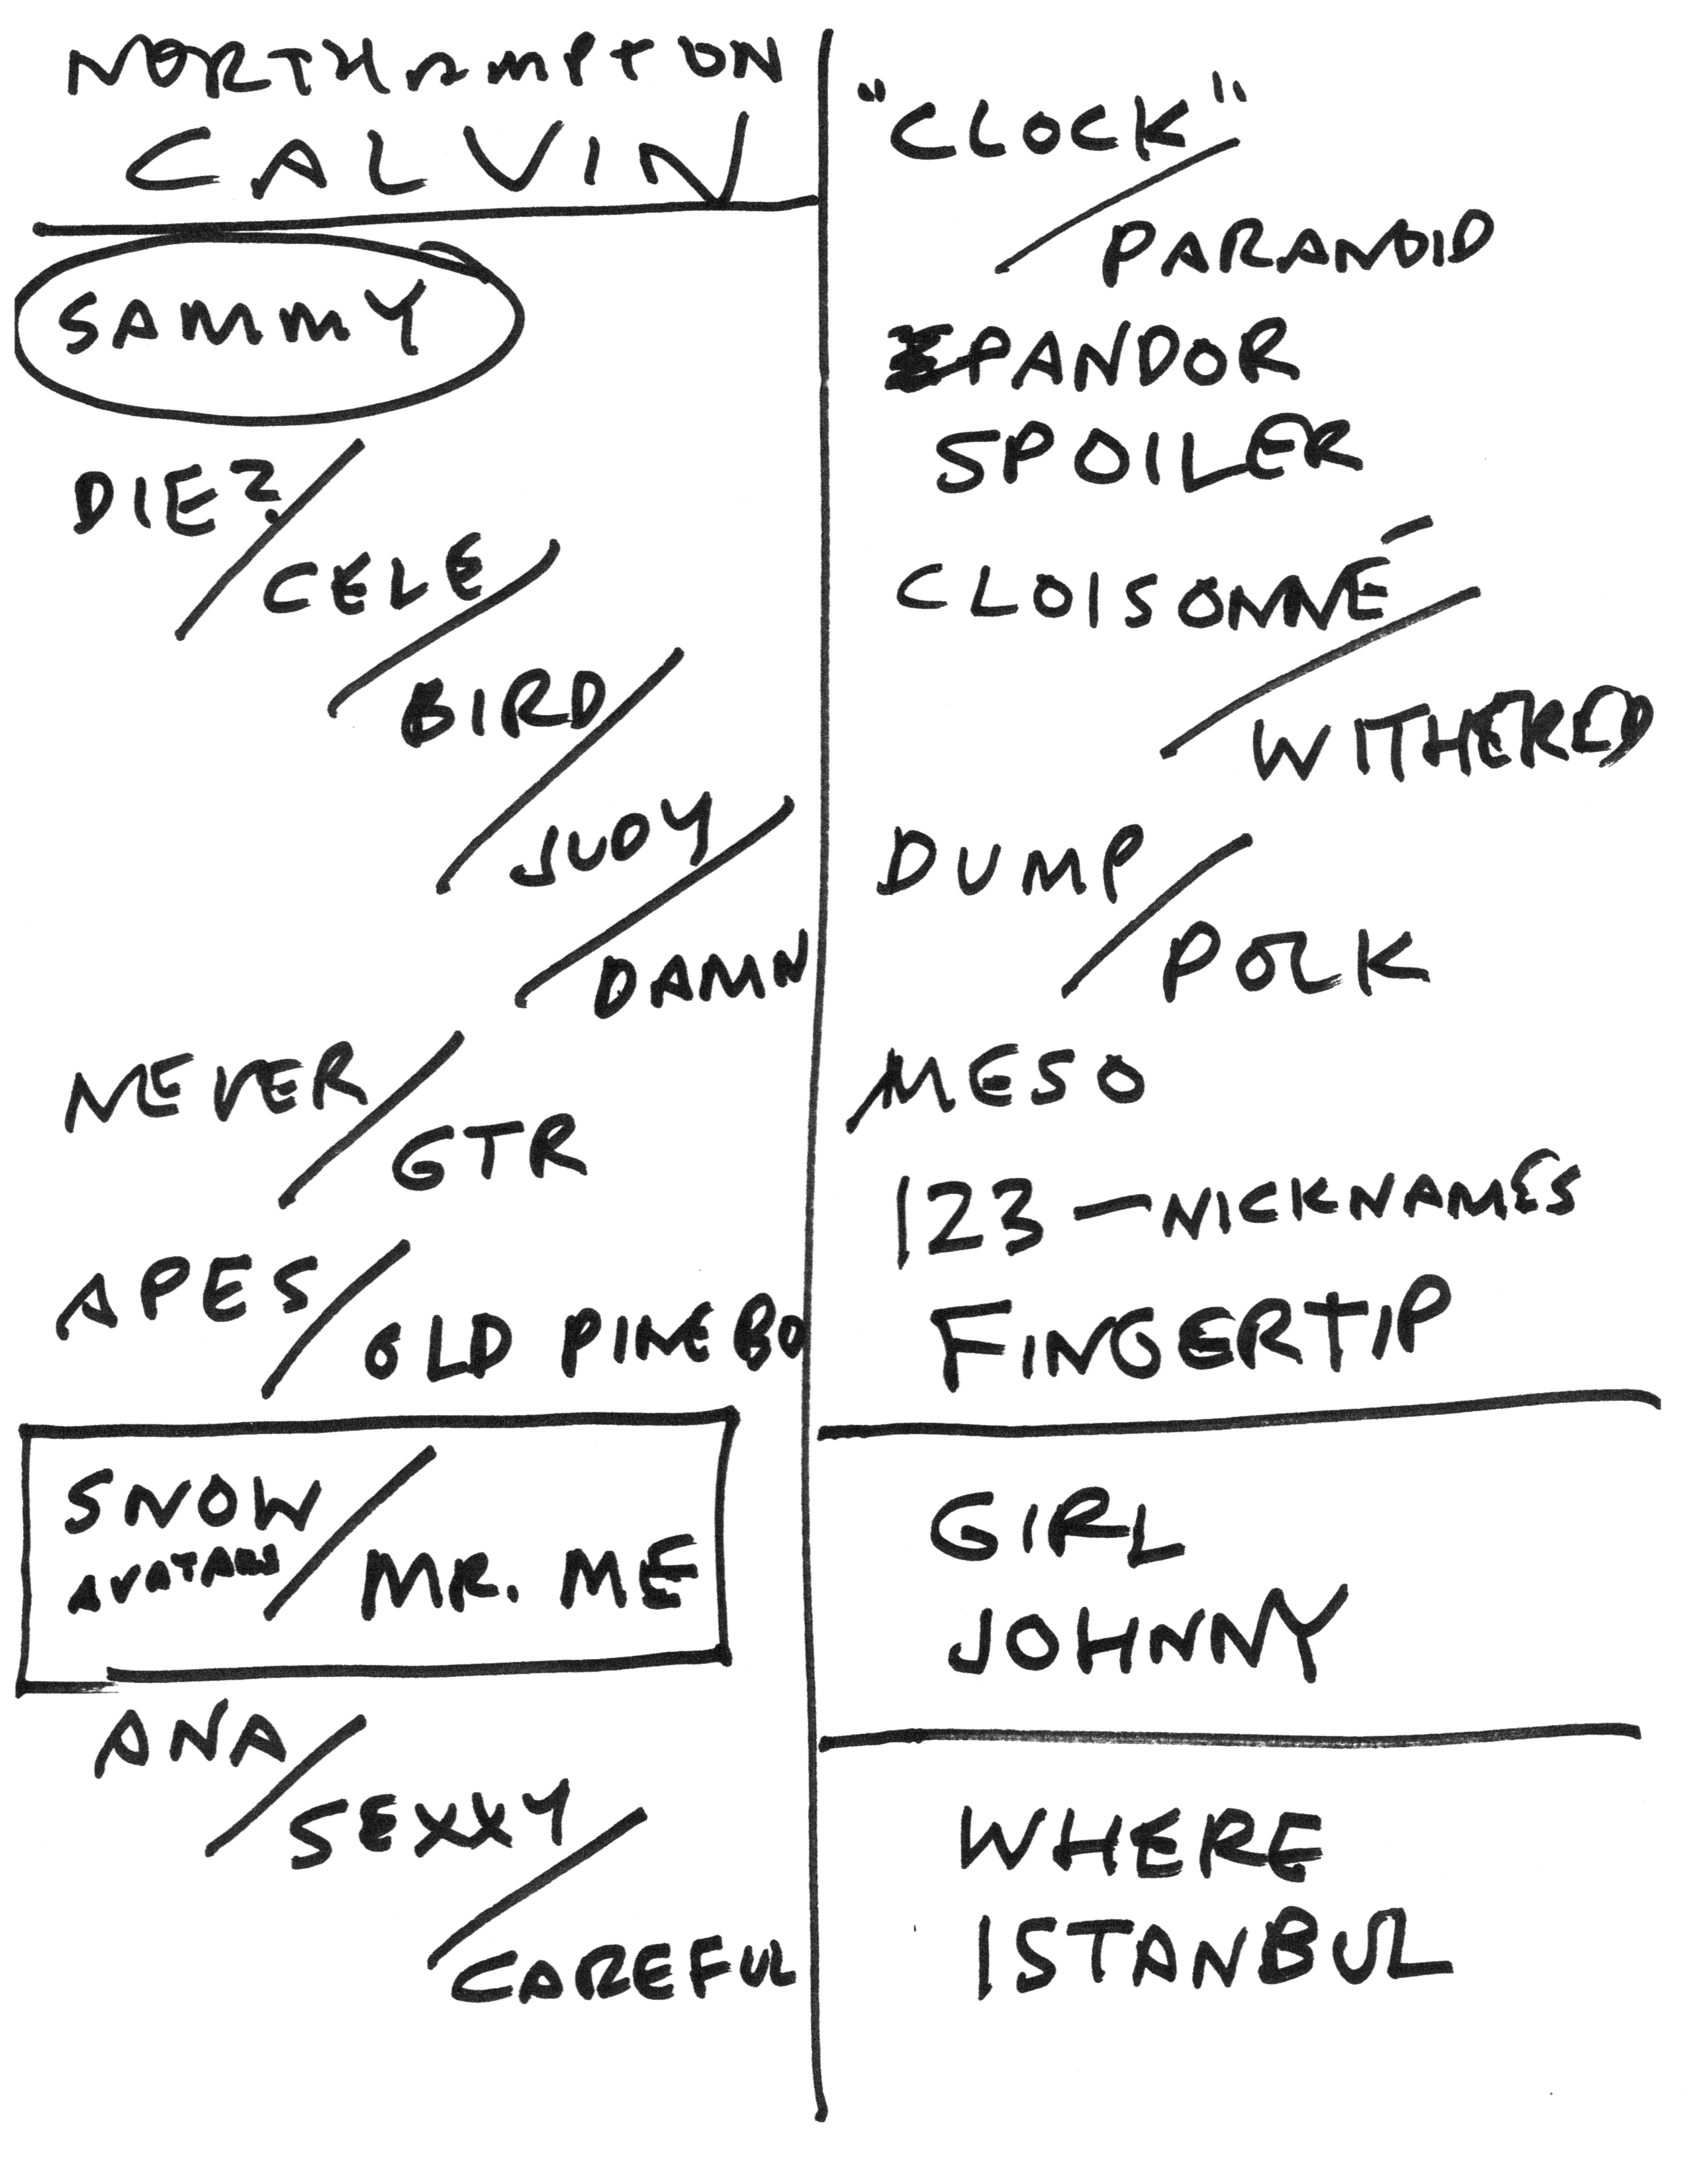 NORTHAMPTON
CALVIN
SAMMY
DIE?/
CELE/
BIRD/
JUDY/
DAMN
NEVER/
GTR
APES/
OLD PINE BO
SNOW/
AVATARS
MR. ME
ANA/
SEXXY/
CAREFUL
"CLOCK"/
PARANOID
PANDOR
SPOILER
CLOISONNÉ/
WITHERED
DUMP/
POLK
MESO
123 – NICKNAMES
FINGERTIP
GIRL
JOHNNY
WHERE
ISTANBUL